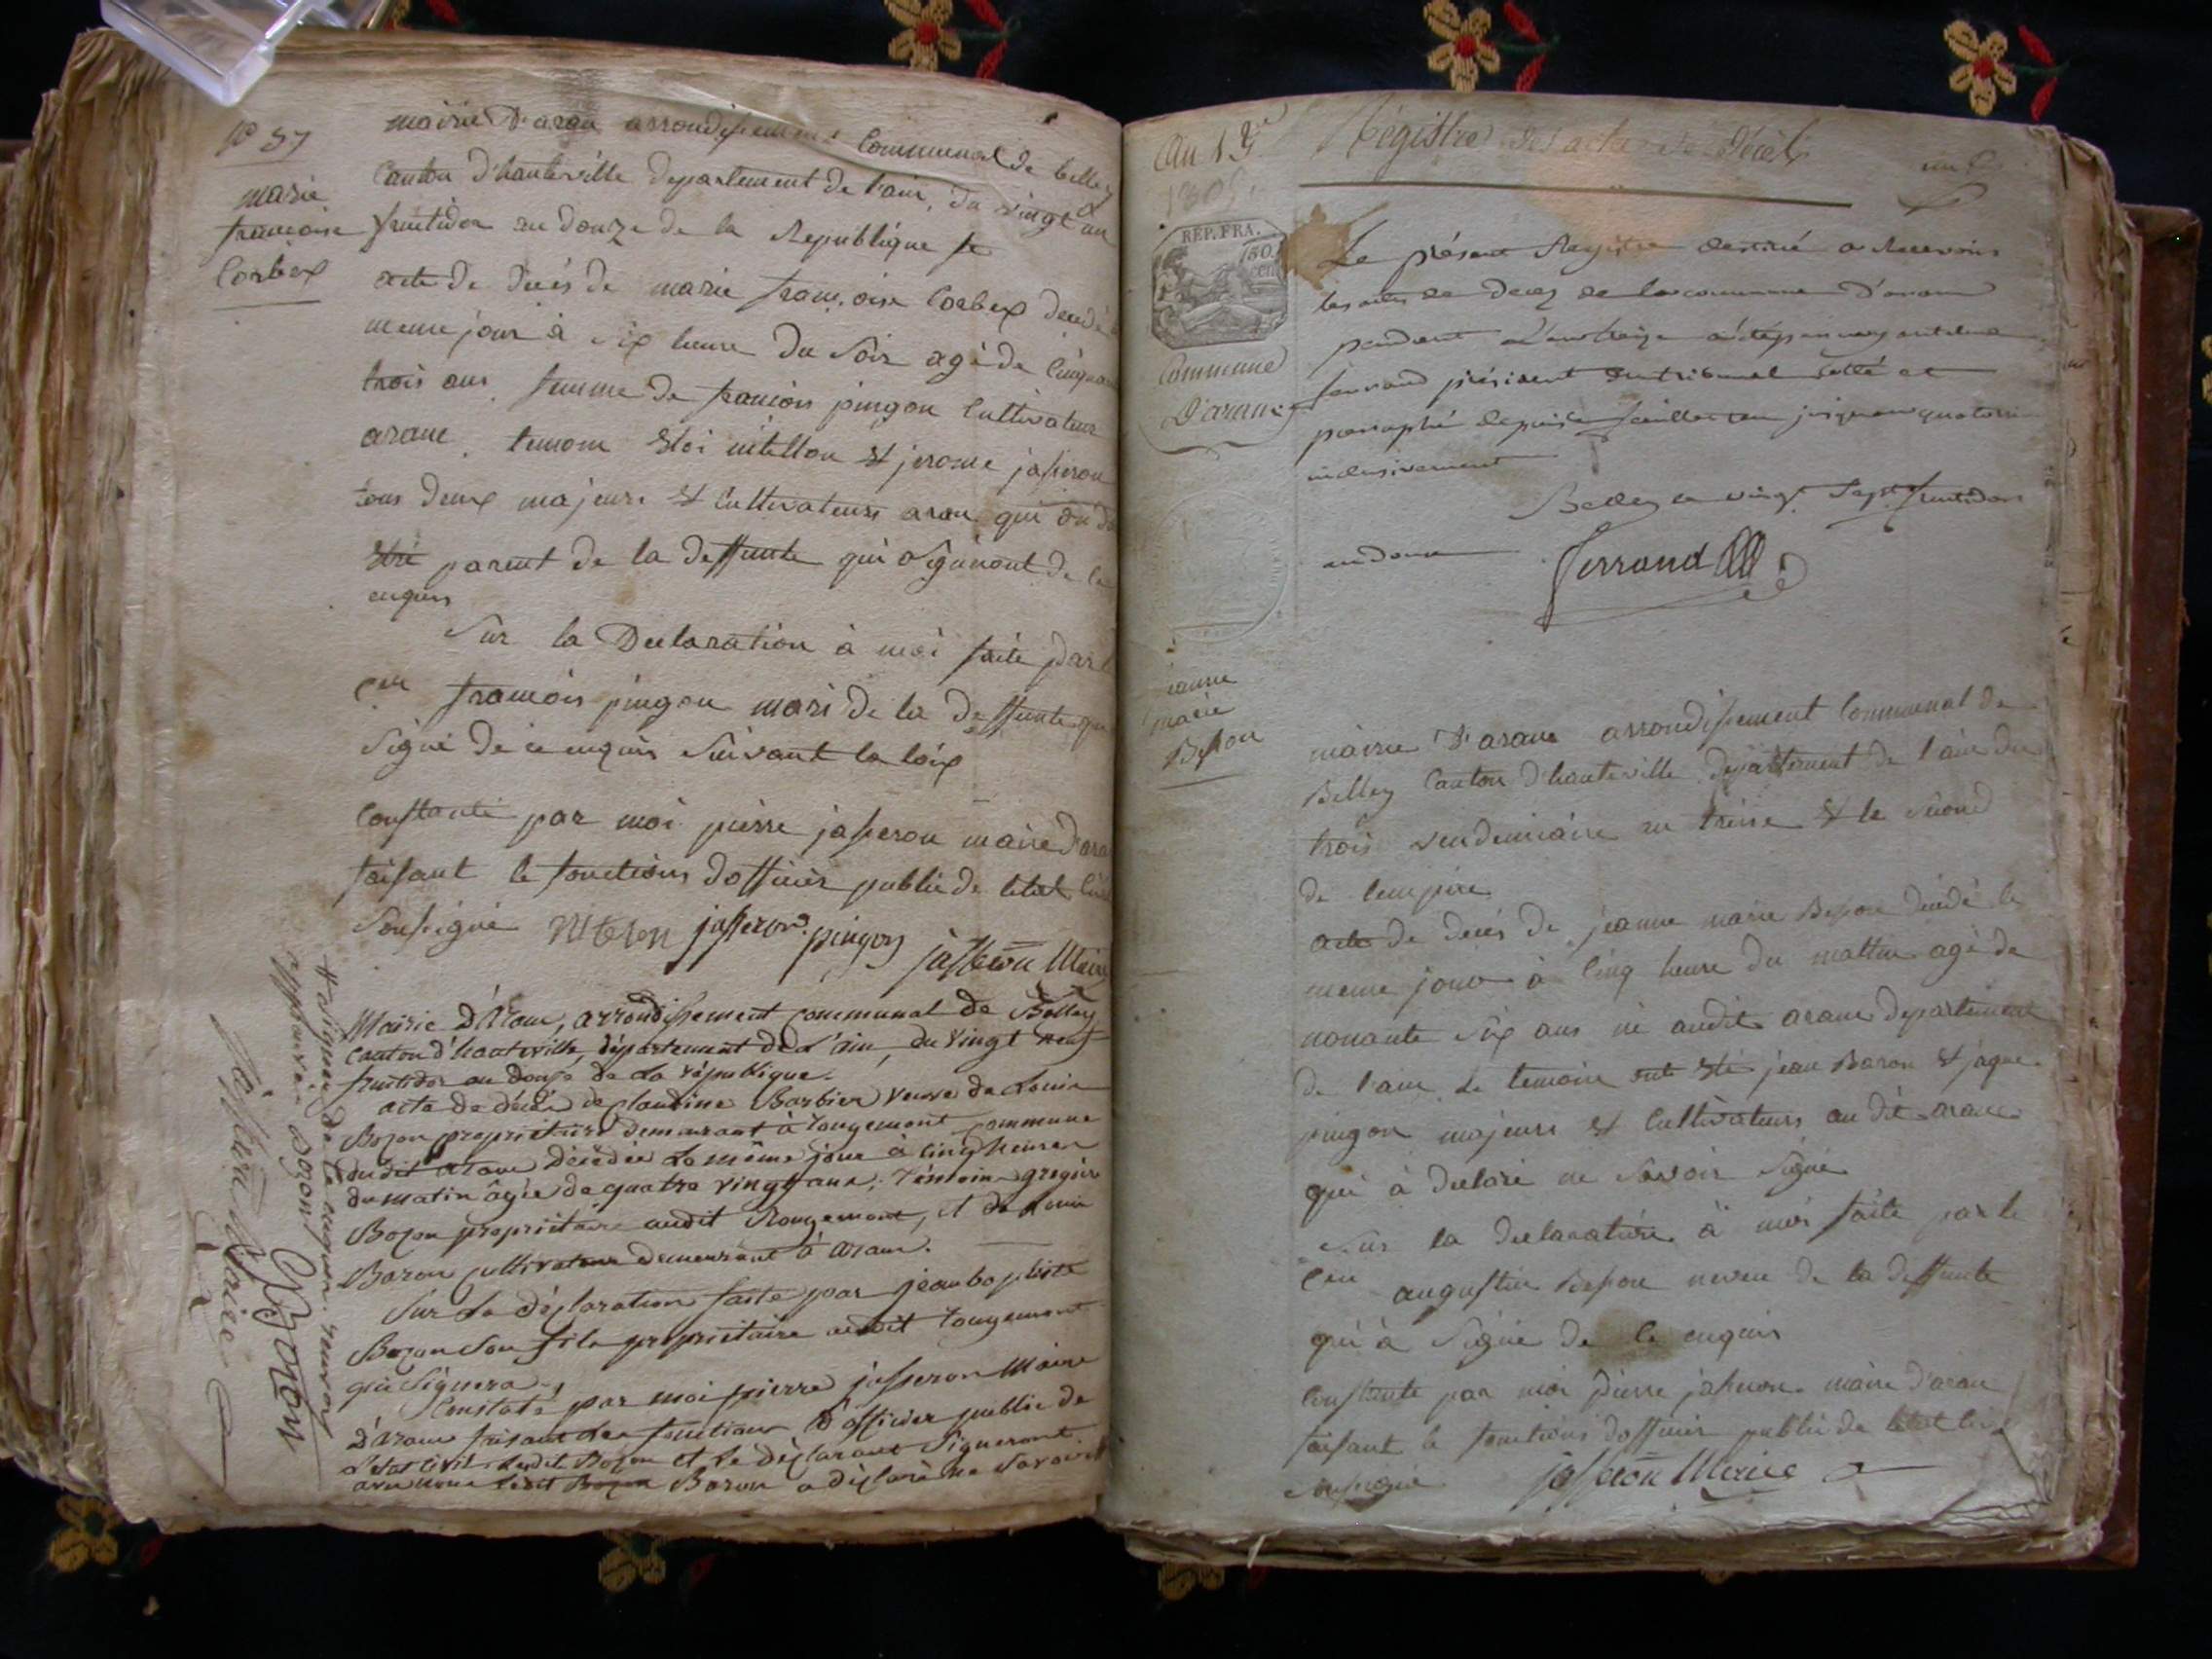 N° 37
marie
francoise
Corbex
mairie d'arau arrondissement Communal de belley
Canton d'hauteville departement de l'ain, du vingt un
fructidor an douze de la Republique fr
acte de decés de marie francoise Corbex decedé
meme jour à six heure du soir agé de Cinquan
trois ans femme de francois pingon Cultivateur
arane temoin Eloi vitellon et jerome jasseron
tous deux majeurs et Cultivateurs arane qui on d
Etre parent de la deffunte qui o signeront de ce
enquis
Sur la Declaration à moi faite par l
Cen francois pingon mari de la deffunte qu
Signé de ce enquis Suivant la loix
Constanté par moi pierre jasseron maire d'ara
faisant le fonctions dofficier public de letat Civil
Soussigné Vitelon jasseron pingon jasseron Maire
Mairie d'Arane, arrondissement communal de Belley
Canton d'hauteville, département de L'ain, du Vingt neuf
fructidor an douze de La république.
acte de décés de claudine Barbier veuve de Louis
Bozon propriétaire demeurant à rougemont commune
dudit arane décédée Le même jour à cinq heures
du matin âgée de quatre vingt ans; témoins gregoire
Bozon propriétaire audit Rougemont, et de Louis
Baron cultivateur demeurant à arane.
Sur La déclaration faite par jean baptiste
Bozon Son fils propriétaire audit rougemont
qui Signera
Constaté par moi pierre jasseron Maire
D'Arane faisant Les fonctions D'officier public de
L'état Civil Ledit Bozon et Le déclarant Signeront
avec nous Ledit Bozon Baron a déclaré ne Savoir
+ Signer de ce enquis. renvoy
approuvé Bozon
jasseron Maire
Bozon
An 13e
1805.
Régistre des actes de Décès
un
REP. FRA.
750.
Commune
D'arane
Le présent Registre destiné a Recevoir
les actes de Decez de la commune D'aranc
pendant L'an treize a été par nous anthelme
ferrand président du tribunal Cotté et
paraphé depuis le feuillet un jusqu'au quatorze
inclusivement
Belley le vingt Sept fructidor
an douze
Ferrand
jeanne
marie
Besson
mairie d'arane arrondissement Communal de
Belley Canton d'hauteville departement de l'ain du
trois vendemiaire an treise et le second
de lempire
acte de decés de jeanne marie Besson decedé le
meme jour à Cinq heure du mattin agé de
nonante six ans né audit arane departement
de l'ain Le temoin ont été jean Baron et jaque
pingon majeurs et Cultivateurs au dit arane
qui à declaré ne Savoir Signé
Sur la declaration à moi faite par le
Cen augustin Besson neveu de la deffunte
qui à Signé de ce enquis
Constanté par moi pierre jasseron maire d'arane
faisant le fonctions dofficier public de letat Civil
soussigné jasseron Maire